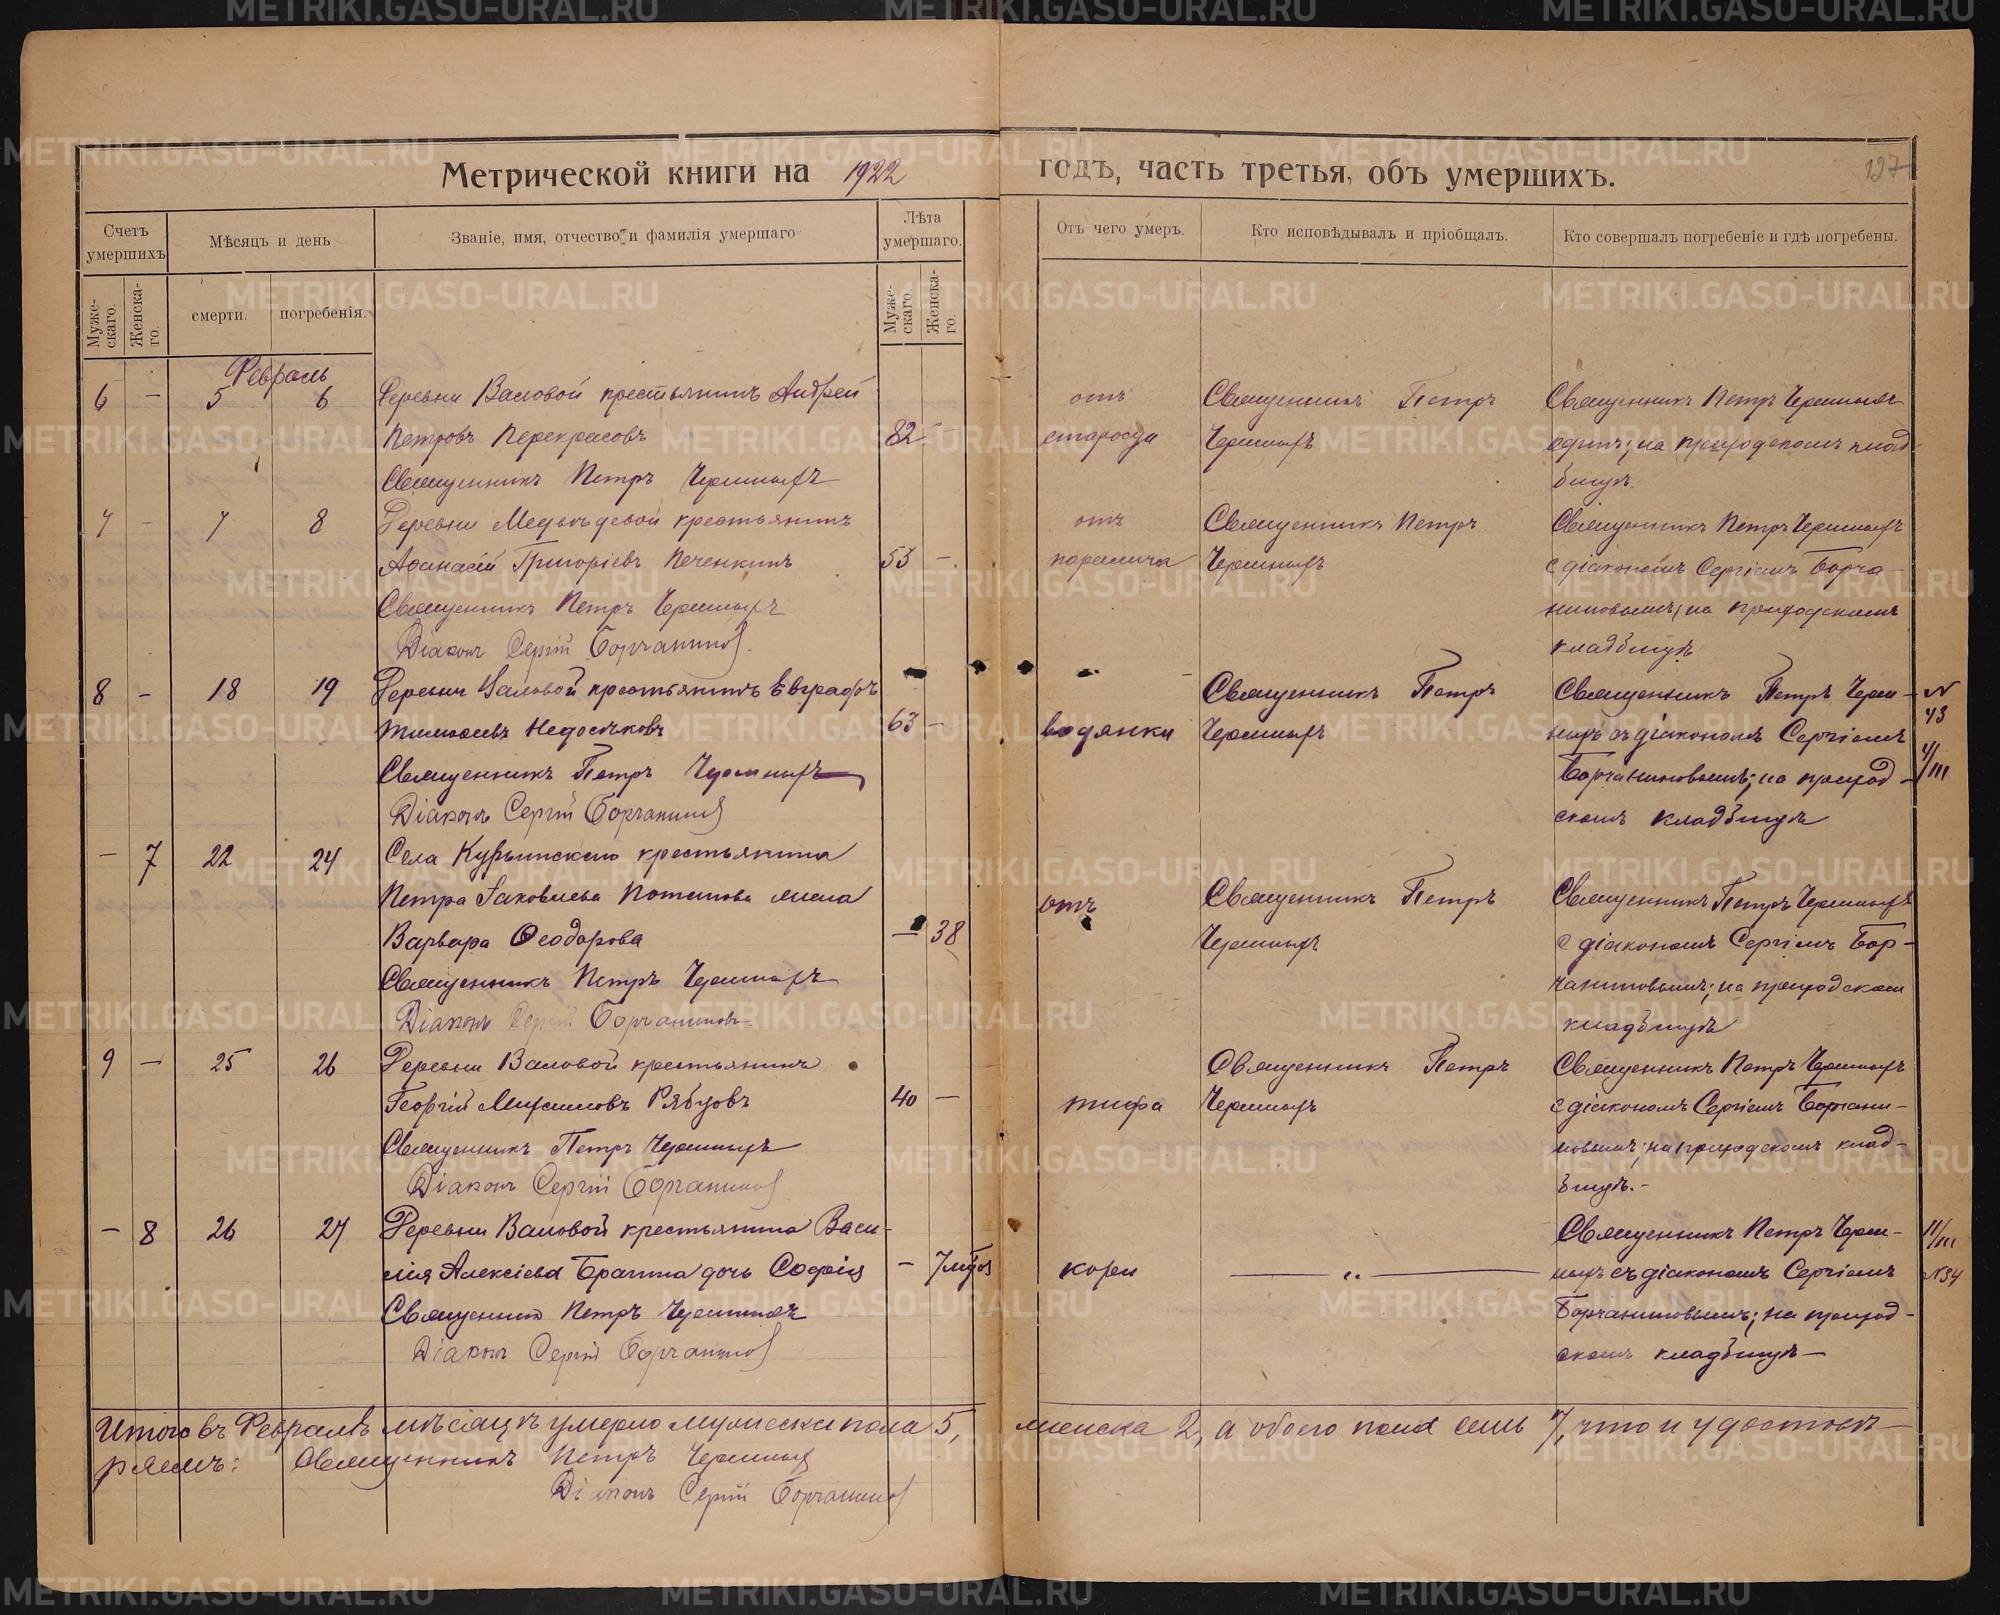 Метрической книги на 1922 годъ, часть третья, объ умершихъ.
127
Счетъ умершихъ
Мѣсяцъ и день
Званіе, имя, отчество и фамилія умершаго
Лѣта умершаго.
Отъ чего умеръ.
Кто исповѣдывалъ и пріобщалъ.
Кто совершалъ погребеніе и гдѣ погребены.
Муже-скаго.
Женска-го.
смерти.
погребенія.
Муже-скаго.
Женска-го.
Февраль
6 — 5 6 Деревни Валовой крестьянинъ Андрей
Петровъ Перекрасовъ 82 —
Священникъ Петръ Черемныхъ
отъ
старости
Священникъ Петръ
Черемныхъ
Священникъ Петръ Черемныхъ
одинъ; на приходскомъ клад-
бищѣ.
7 - 7 8 Деревни Медвѣдевой крестьянинъ
Аѳанасій Григоріевъ Печенкинъ 53 —
Священникъ Петръ Черемныхъ
Діаконъ Сергій Борчаниновъ
отъ
паралича
Священникъ Петръ
Черемныхъ
Священникъ Петръ Черемныхъ
с діакономъ Сергіемъ Борча-
ниновымъ; на приходскомъ
кладбищѣ
8 - 18 19 Деревни Валовой крестьянинъ Евграфъ
Тимоѳеевъ Недосѣковъ 63 —
Священникъ Петръ Черемныхъ
Діаконъ Сергій Борчаниновъ
водянки
Священникъ Петръ
Черемныхъ
Священникъ Петръ Черем-
ныхъ съ діакономъ Сергіемъ
Борчаниновымъ; на приход-
скомъ кладбищѣ
N
43
1/III
— 7 22 24 Села Курьинскаго крестьянина
Петра Іаковлева Потапова жена
Варвара Ѳеодорова — 38
Священникъ Петръ Черемныхъ
Діаконъ Сергій Борчаниновъ
отъ
Священникъ Петръ
Черемныхъ
Священникъ Петръ Черемныхъ
с діакономъ Сергіемъ Бор-
чаниновымъ; на приходскомъ
кладбищѣ
9 — 25 26 Деревни Валовой крестьянинъ
Георгій Рябцовъ 40 —
Священникъ Петръ Черемныхъ
Діаконъ Сергій Борчаниновъ
тифа
Священникъ Петръ
Черемныхъ
Священникъ Петръ Черемныхъ
с діакономъ Сергіемъ Борчани-
новымъ; на приходскомъ клад-
бищѣ.-
— 8 26 27 Деревни Валовой крестьянина Васи-
лія Алексіева дочь Софія — 7
Священникъ Петръ Черемныхъ
Діаконъ Сергій Борчаниновъ
кори
— „ —
Священникъ Петръ Черем-
ныхъ съ діакономъ Сергіемъ
Борчаниновымъ; на приход-
скомъ кладбищѣ —
11/III
N34
Итого въ Февралѣ мѣсяцѣ умерло мужеска пола 5, женска 2, а обоего пола семь 7, что и удостовѣ-
ряемъ: Священникъ Петръ Черемныхъ
Діаконъ Сергій Борчаниновъ
METRIKI.GASO-URAL.RU